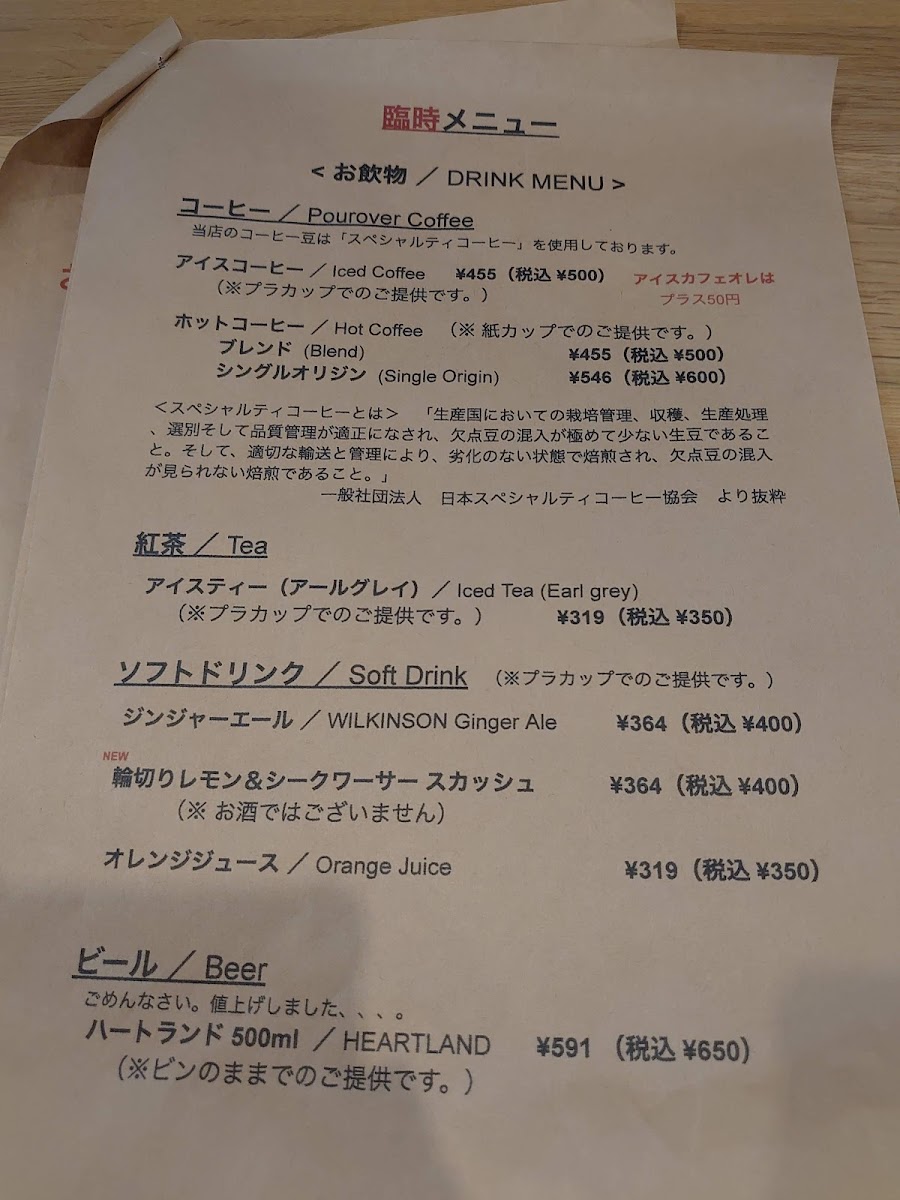 臨時メニュー
< お飲物 ／ DRINK MENU >
コーヒー ／ Pourover Coffee
当店のコーヒー豆は「スペシャルティコーヒー」を使用しております。
アイスコーヒー ／ Iced Coffee ¥455（税込 ¥500） アイスカフェオレは
（※プラカップでのご提供です。） プラス50円
ホットコーヒー ／ Hot Coffee （※ 紙カップでのご提供です。）
ブレンド (Blend) ¥455（税込 ¥500）
シングルオリジン (Single Origin) ¥546（税込 ¥600）
＜スペシャルティコーヒーとは＞ 「生産国においての栽培管理、収穫、生産処理
、選別そして品質管理が適正になされ、欠点豆の混入が極めて少ない生豆であるこ
と。そして、適切な輸送と管理により、劣化のない状態で焙煎され、欠点豆の混入
が見られない焙煎であること。」
一般社団法人 日本スペシャルティコーヒー協会 より抜粋
紅茶 ／ Tea
アイスティー（アールグレイ）／ Iced Tea (Earl grey)
（※プラカップでのご提供です。） ¥319（税込 ¥350）
ソフトドリンク ／ Soft Drink （※プラカップでのご提供です。）
ジンジャーエール ／ WILKINSON Ginger Ale ¥364（税込 ¥400）
NEW
輪切りレモン＆シークワーサー スカッシュ ¥364（税込 ¥400）
（※ お酒ではございません）
オレンジジュース ／ Orange Juice ¥319（税込 ¥350）
ビール ／ Beer
ごめんなさい。値上げしました、、、。
ハートランド 500ml ／ HEARTLAND ¥591 （税込 ¥650）
（※ビンのままでのご提供です。）